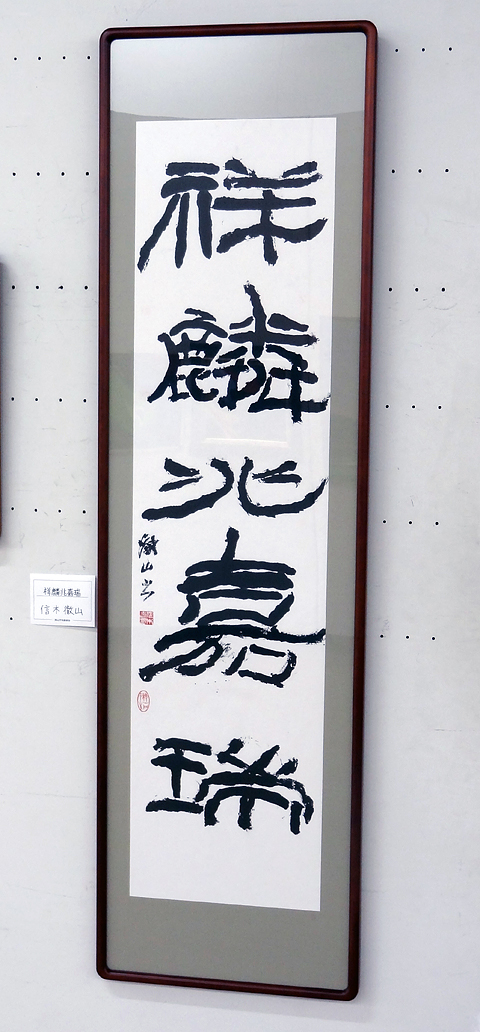 祥麟兆嘉瑞
徹山书
祥麟兆嘉瑞
信木徹山